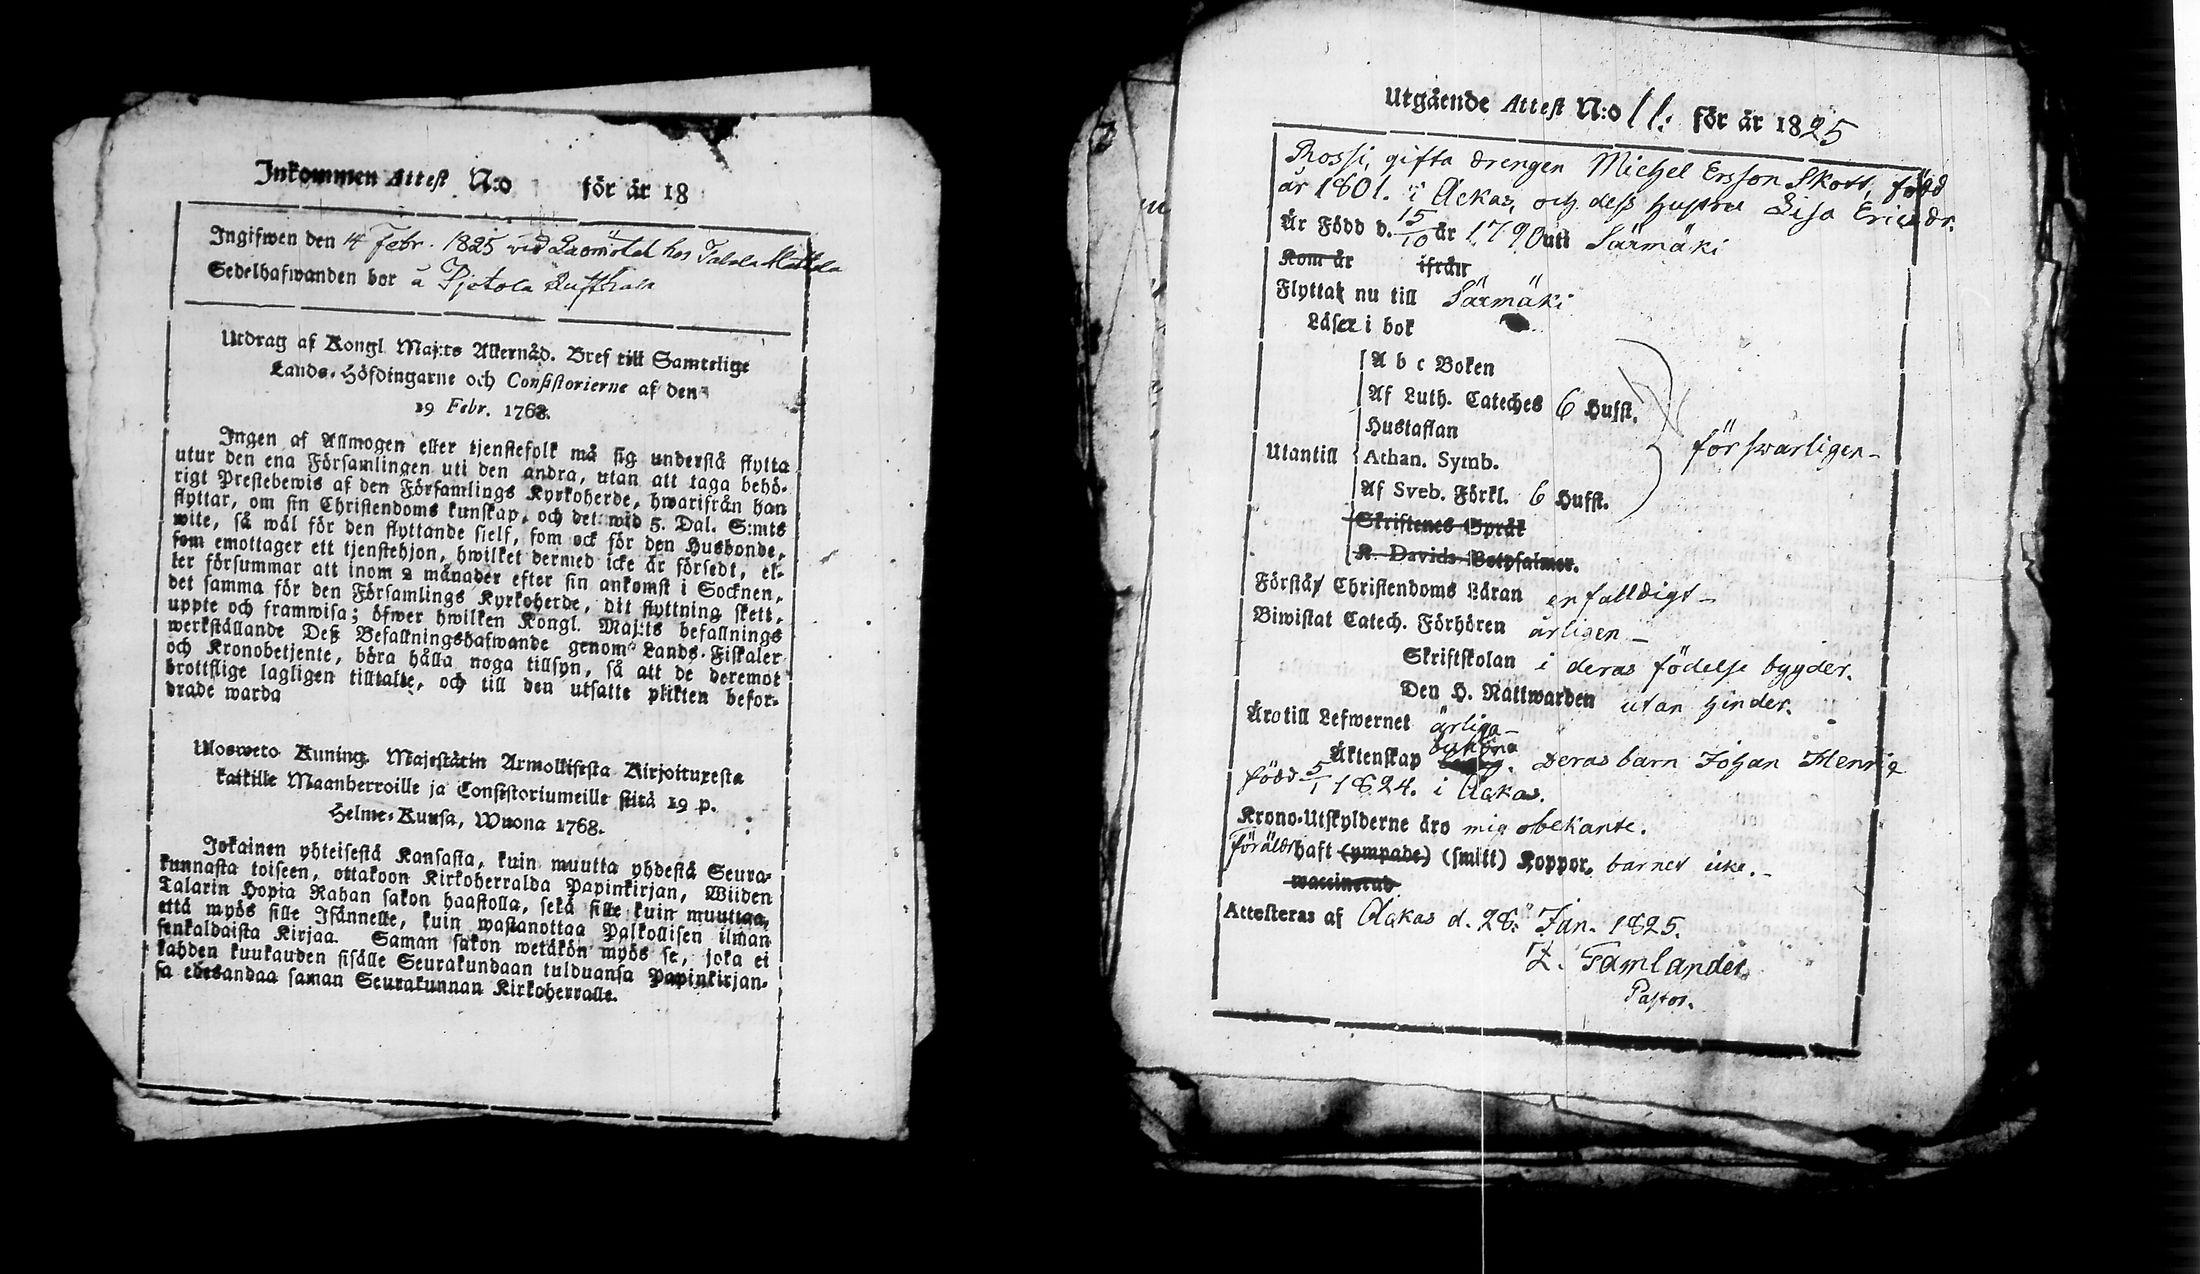 Inkommen Attest N:o för år 18
Ingifwen den 14 Febr. 1825 vid hos
Sedelhafwanden bor å Pjetola
Utdrag af Kongl. Maj:ts Allernåd. Bref till Samtelige
Lands-Höfdingarne och Consistorierne af den
19 Febr. 1768.
Ingen af Allmogen eller tjenstefolk må sig understå flytta
utur den ena Församlingen uti den andra, utan att taga behö-
rigt Prestebewis af den Församlings Kyrkoherde, hwarifrån han
flyttar, om sin Christendoms kunskap, och det wid 5. Dal. S:mts
wite, så wäl för den flyttande sielf, som ock för den Husbonde,
som emottager ett tjenstehjon, hwilket dermed icke är försedt, el-
ler försummar att inom 2 månader efter sin ankomst i Socknen,
det samma för den Församlings Kyrkoherde, dit flyttning skett,
uppte och framwisa; öfwer hwilken Kongl. Maj:ts befallnings
werkställande Deß Befallningshafwande genom Lands-Fiskaler
och Kronobetjente, böra hålla noga tillsyn, så att de deremot
brottslige lagligen tilltalte, och till den utsatte plikten befor-
drade warda
Ulosweto Kuning. Majestätin Armollisesta Kirjoituxesta
kaikille Maanherroille ja Consistoriumeille siitä 19 p.
Helme-Kuusa, Wuona 1768.
Jokainen yhteisestä Kansasta, kuin muutta yhdestä Seura-
kunnasta toiseen, ottakoon Kirkoherralda Papinkirjan, Wiiden
Talarin Hopia Rahan sakon haastolla, sekä sille kuin muuttaa,
että myös sille Isännelle, kuin wastanottaa Palkollisen ilman
senkaldaista Kirjaa. Saman sakon wetäkön myös se, joka ei
kahden kuukauden sisälle Seurakundaan tulduansa Papinkirjan-
sa edesandaa saman Seurakunnan Kirkoherralle.
Utgående Attest N:o 11: för år 1825
Rossi, gifta drengen Michel Ersson Skott, född
år 1801. i Ackas, och deß hustru Lisa Ericsdr.
Är Född d. 15/10 år 1790 uti Särmäki
Kom år ifrån
Flyttat nu till Särmäki
Läser i bok
A b c Boken
Af Luth. Cateches 6 Hufst.
Hustaflan
Utantill Athan. Symb. försvarligen –
Af Sveb. Förkl. 6 Hufst.
Skriftenes Språk
K. Davids Botpsalmer.
Förstå Christendoms Läran enfalldigt –
Biwistat Catech. Förhören årligen –
Skriftskolan i deras födelse bygder.
Den H. Nattwarden utan hinder.
Äro till Lefwernet ärliga –
Äktenskap Deras barn Johan Henric
född 5/1 1824. i Ackas.
Krono-Utskylderne äro mig obekante.
Föräldr haft (ympade) (smitt) Koppor, barnet icke. –
waccinerad
Attesteras af Ackas d. 28: Jan. 1825.
Z. Famlander
Pastor.